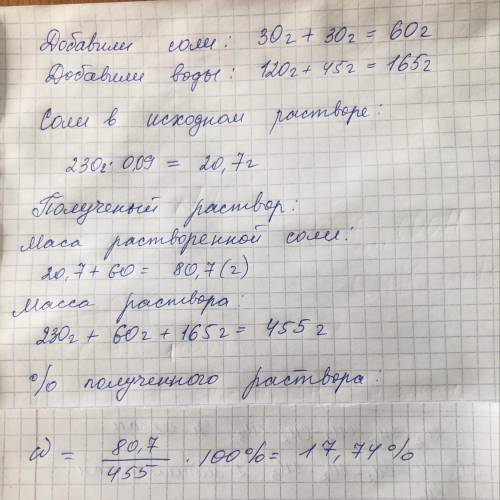 Добавили соли: 30г + 30г = 60г
Добавили воды: 120г + 45г = 165г
Соли в исходном растворе:
230г · 0,09 = 20,7г
Полученый раствор:
Маса растворенной соли:
20,7 + 60 = 80,7 (г)
Масса раствора:
230г + 60г + 165г = 455г
% полученного раствора:
ω = 80,7/455 · 100% = 17,74%